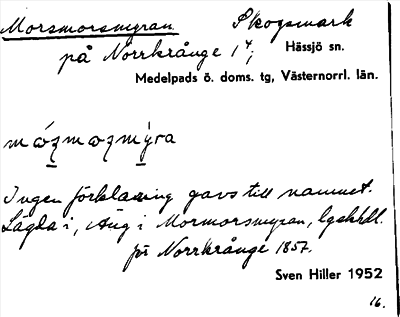 Morsmorsmyran. Skogsmark
på Norrkrånge 1⁴; Hässjö sn.
Medelpads ö. doms. tg, Västernorrl. län.
Ingen förklaring gavs till namnet.
Lägda i, Äng i Mormorsmyran, lgskhdl.
på Norrkrånge 1857.
Sven Hiller 1952
16.